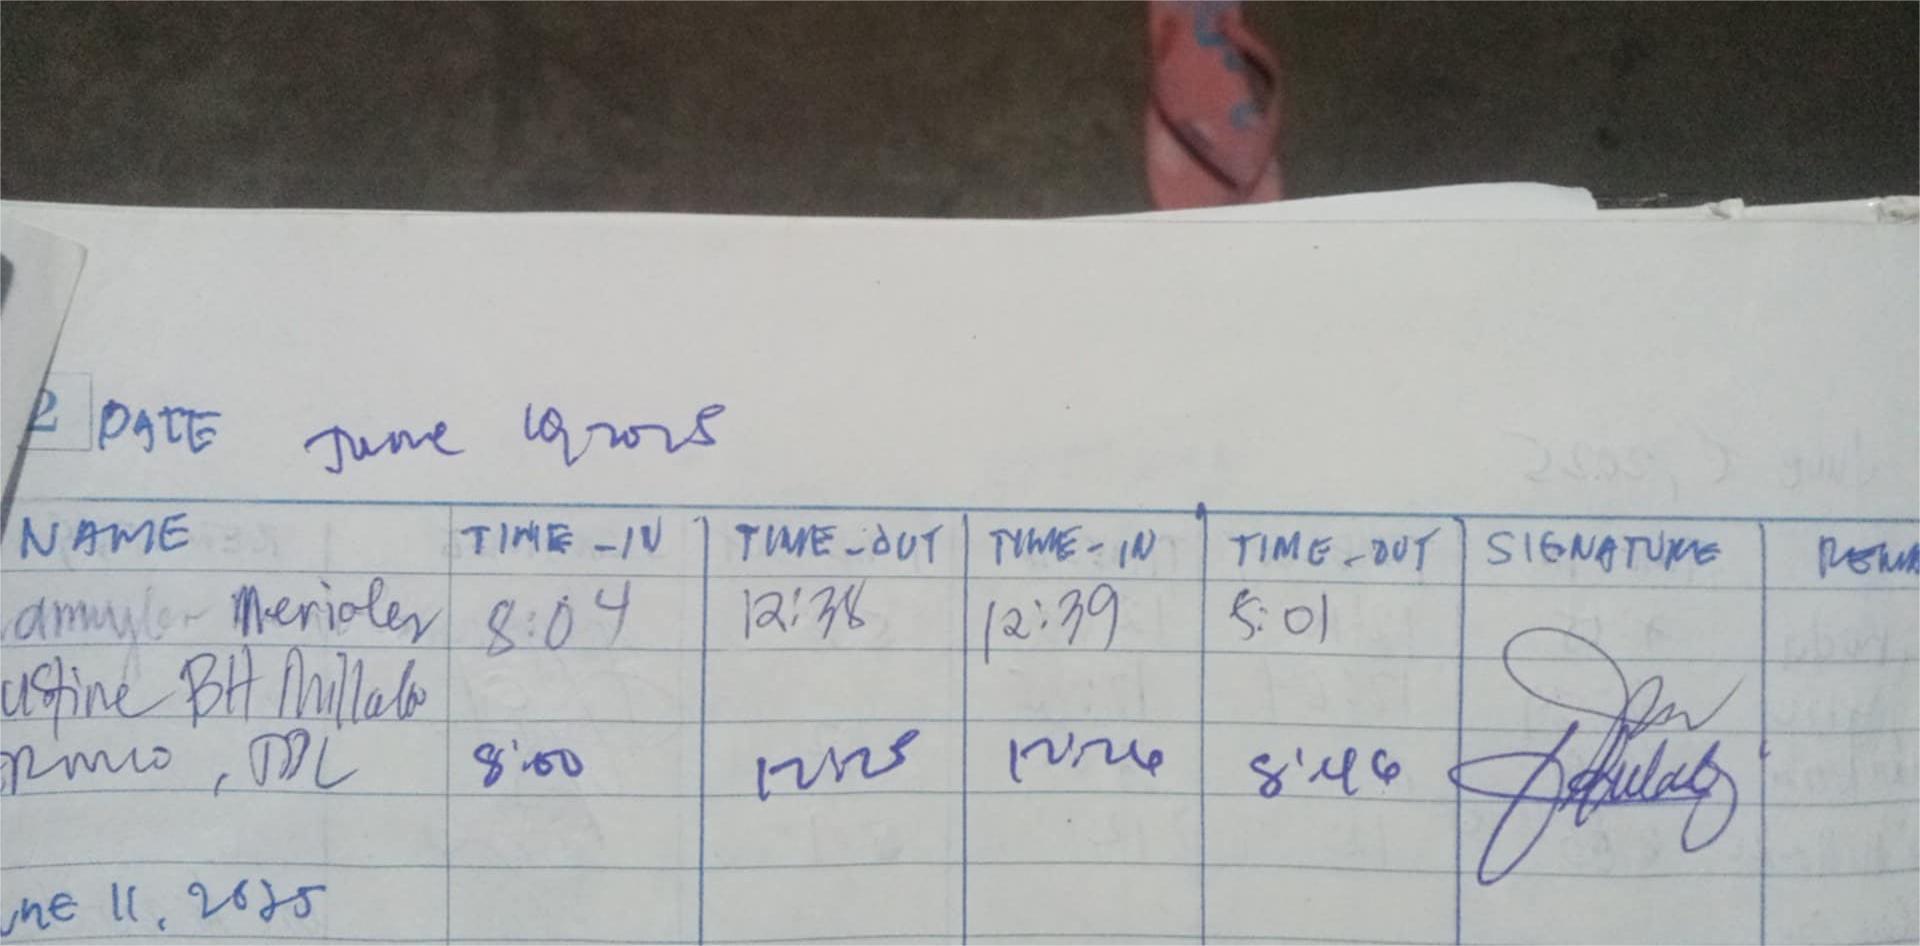 2 DATE June 10, 2025
NAME TIME-IN TIME-OUT TIME-IN TIME-OUT SIGNATURE REMA
Merioles 8:04 12:38 12:39 5:01
ustine BH Millabo
, JBL 8:00 12:25 12:26 8:46
une 11, 2025